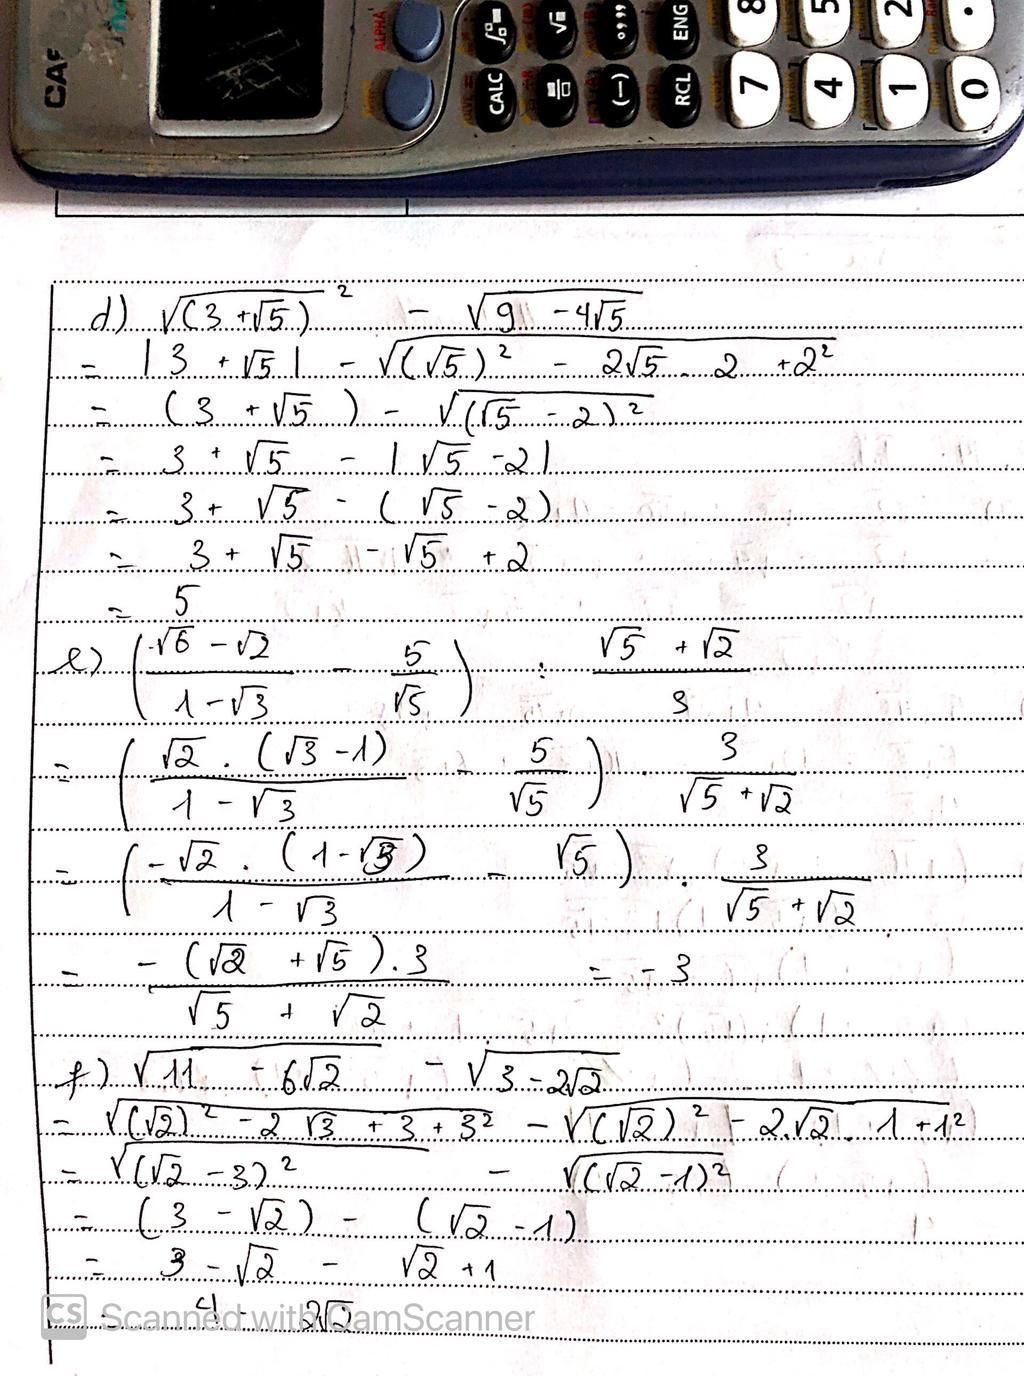 CAS
ALPHA
CALC
(−)
RCL
ENG
7 8
4 5
1 2
0 .
d) √(3 + √5)² − √9 − 4√5
= |3 + √5| − √(√5)² − 2√5 . 2 + 2²
= (3 + √5) − √(√5 − 2)²
= 3 + √5 − |√5 − 2|
= 3 + √5 − (√5 − 2)
= 3 + √5 − √5 + 2
= 5
e) (√6 − √2 / 1 − √3 − 5/√5) : √5 + √2 / 3
= (√2 . (√3 − 1) / 1 − √3 − 5/√5) . 3 / √5 + √2
= (−√2 . (1 − √3) / 1 − √3 − √5) . 3 / √5 + √2
= −(√2 + √5) . 3 / √5 + √2 = −3
f) √11 − 6√2 − √3 − 2√2
= √(√2)² − 2 √3 + 3 + 3² − √(√2)² − 2.√2 . 1 + 1²
= √(√2 − 3)² − √(√2 − 1)²
= (3 − √2) − (√2 − 1)
= 3 − √2 − √2 + 1
= 4 − 2√2
CS Scanned with CamScanner